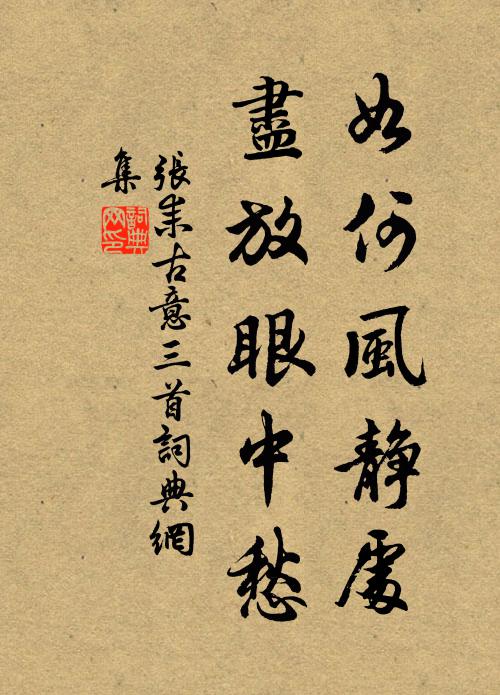 如何風靜處
盡放眼中愁
張耒古意三首詞典網
集
詞典
网印